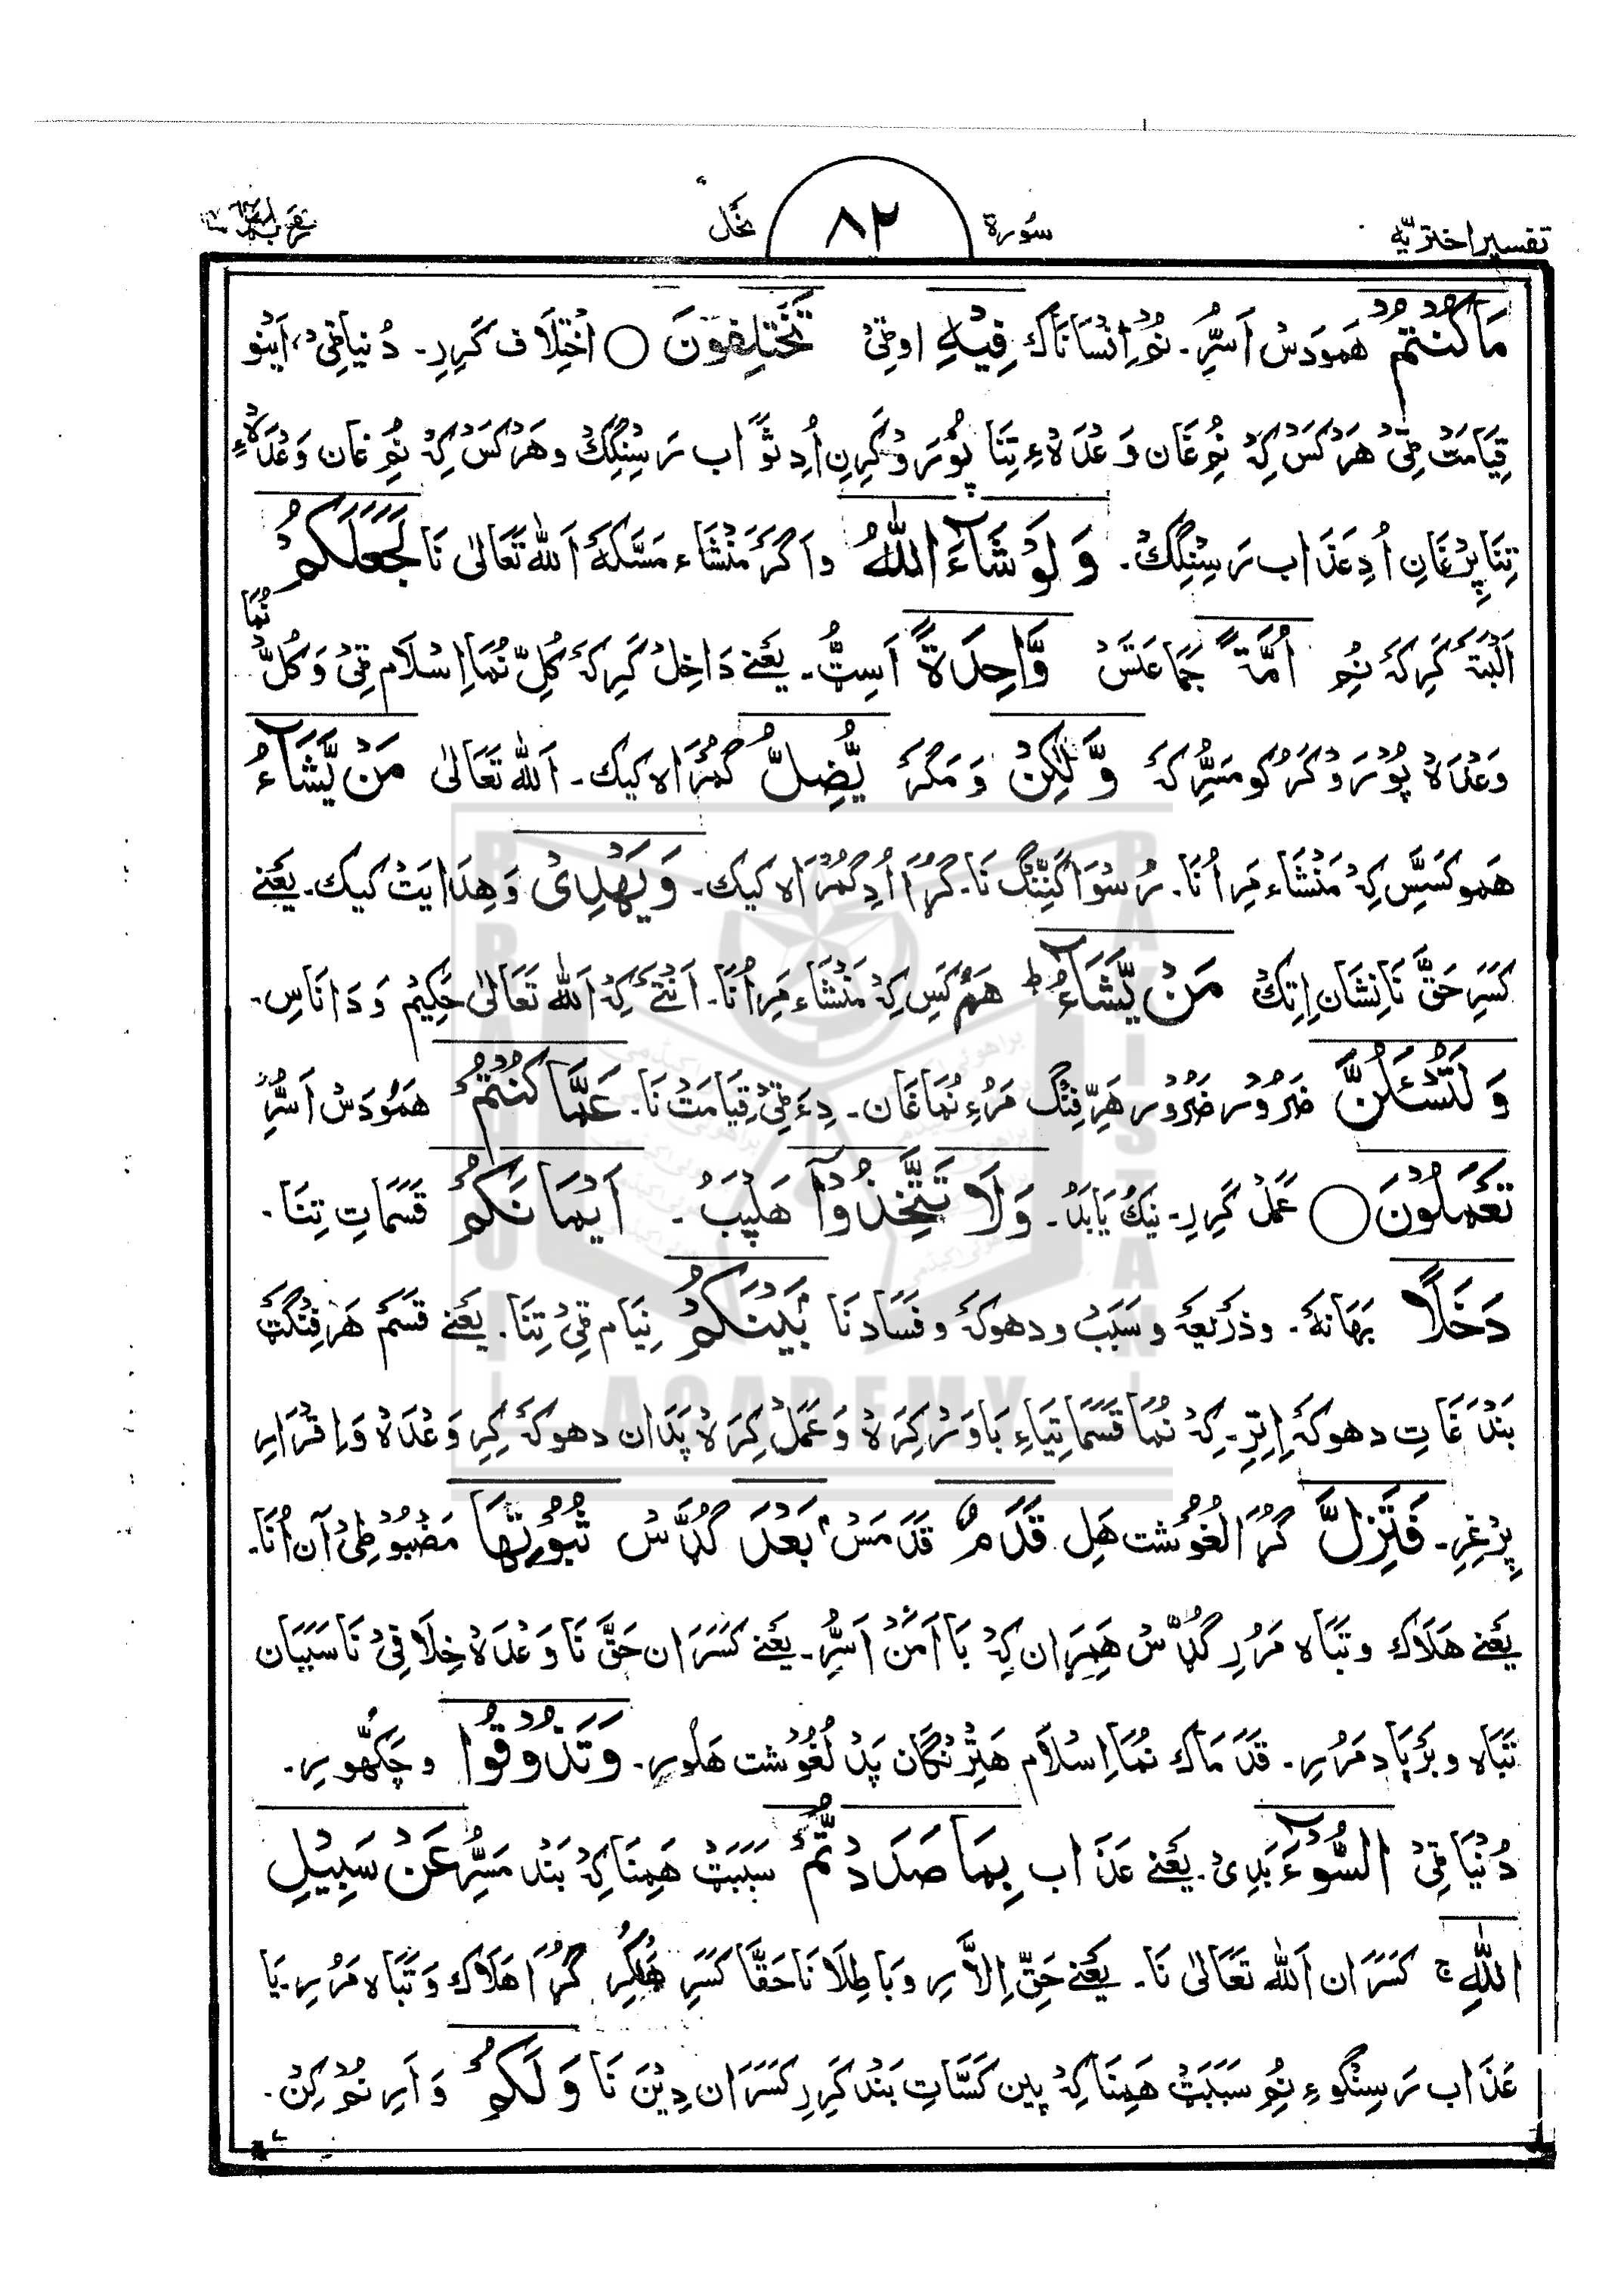 تفسیر اختریّه سُورة ۸۲ نحل
مَا كُنْتُمْ هَمودَسْ اَسُّرِ۔ نُم اِنْسَانَاك فِيْهِ اوٹِی تَخْتَلِفُونَ ○ اخْتِلَاف كَرِرِ۔ دُنیاٹِی، اَینو
قِیَامَتْ ٹِی هَرْكَسْ كِهْ نُم غَان وَعْدَهءِ تِنَا پُوْرَو كَرِن اُدِ ثَوَاب رَسِنْگِكْ و هَرْكَسْ كِهْ نُم غَان وَعْدَهءِ
تِنَا پِرْغَانِ اُدِ عَذَاب رَسِنْگِكْ۔ وَلَوْ شَآءَ اللهُ و اَگَر مَنْشَاء مَسَّكَهْ اَلله تَعَالٰی نَا لَجَعَلَكُمْ
اَلْبَتَّه كَرِكَهْ نُم اُمَّةً جَمَاعَتَسْ وَّاحِدَةً اَسِٹْ۔ یَعْنے دَاخِلْ كَرِكَهْ كُلِّ نُمَا اِسْلَام ٹِی وَ كُلّ نُمَا
وَعْدَه پُوْرَو كَرْكُو مَسُّرِ كَهْ وَّلٰكِنْ وَ مَگَر یُّضِلُّ گُمْرَاه كیك۔ اَلله تَعَالٰی مَنْ یَّشَآءُ
هَمو كَسِّس كِهْ مَنْشَاء مَرِ اُنَا۔ رُسْوَا كَنِنْگ نَا۔ گُرَا اُدِ گُمْرَاه كیك۔ وَیَهْدِیْ وَ هِدَایَتْ كیك۔ یَعْنے
كَسَرِ حَقّ نَا نِشَان اِتِكْ مَنْ یَّشَآءُ ط هَمْ كَسِ كِهْ مَنْشَاء مَرِ اُنَا۔ اَنْتَے كِهْ اَلله تَعَالٰی حَكِیْم وَ دَانَاسِ۔
وَلَتُسْئَلُنَّ ضَرُوْر ضَرُوْر هَرِّفِنْگ مَرُءِ نُمَا غَان۔ دِءِ ٹِی قِیَامَتْ نَا۔ عَمَّا كُنْتُمْ هَمودَسْ اَسُّرِ
تَعْمَلُوْنَ ○ عَمَلْ كَرِرِ۔ نِیَكْ یَا بَدْ۔ وَلَا تَتَّخِذُوْآ هَلِپَبْ۔ اَیْمَانَكُمْ قَسَمَاتِ تِنَا۔
دَخَلًا بَهَانَهْ۔ و ذَرِیْعَهْ و سَبَبْ و دهوكَهْ و فَسَاد نَا بَیْنَكُمْ نِیَام ٹِی تِنَا۔ یَعْنے قَسَمْ هَرِفِنْگٹ
بَنْدَغَاتِ دهوكَه اِتِرِ۔ كِهْ نُمَا قَسَمَاتِیَاءِ بَاوَرْ كِرَهْ وَ عَمَلْ كِرَهْ پَدَان دهوكَه كِرِ وَعْدَه وَ اِقْرَارِ
پِرْغِرِ۔ فَتَزِلَّ گُرَا لَغُوْشت هَلِ قَدَمٌۢ قَدَمَسْ بَعْدَ گُڈَّس ثُبُوْتِهَا مَضْبُوطِی آن اُنَا۔
یَعْنے هَلَاك و تَبَاه مَرُرِ گُڈَّس هَمِرَان كِهْ بَا اَمَنْ اَسُّرِ۔ یَعْنے كَسَرَان حَقّ نَا وَعْدَه خِلَافِیْ نَا سَبَبَان
تَبَاه و بَرْبَاد مَرُرِ۔ قَدَمَاك نُمَا اِسْلَام هِتِنْگَان پَدْ لَغُوْشت هَلورِ۔ وَتَذُوْقُوا و چَكّهورِ۔
دُنْیَاٹِی السُّوْٓءَ بَدِیْ۔ یَعْنے عَذَاب بِمَا صَدَدْتُّمْ سَبَبَٹْ هَمِنَا كِهْ بَنْد مَسُّرِ عَنْ سَبِیْلِ
اللهِ ج كَسَرَان اَلله تَعَالٰی نَا۔ یَعْنے حَقّ اِلَّارِ وَ بَاطِلَا نَاحَقَّا كَسَرِ هَلْكُرِ گُرَا هَلَاك وَ تَبَاه مَرُرِ۔ یَا
عَذَاب رَسِنْگو ءِ نُم سَبَبَٹْ هَمِنَا كِهْ پین كَسَّاتِ بَنْد كَرِرِ كَسَرَان دِیْن نَا وَلَكُمْ وَ اَرِ نُمْ كِنْ۔